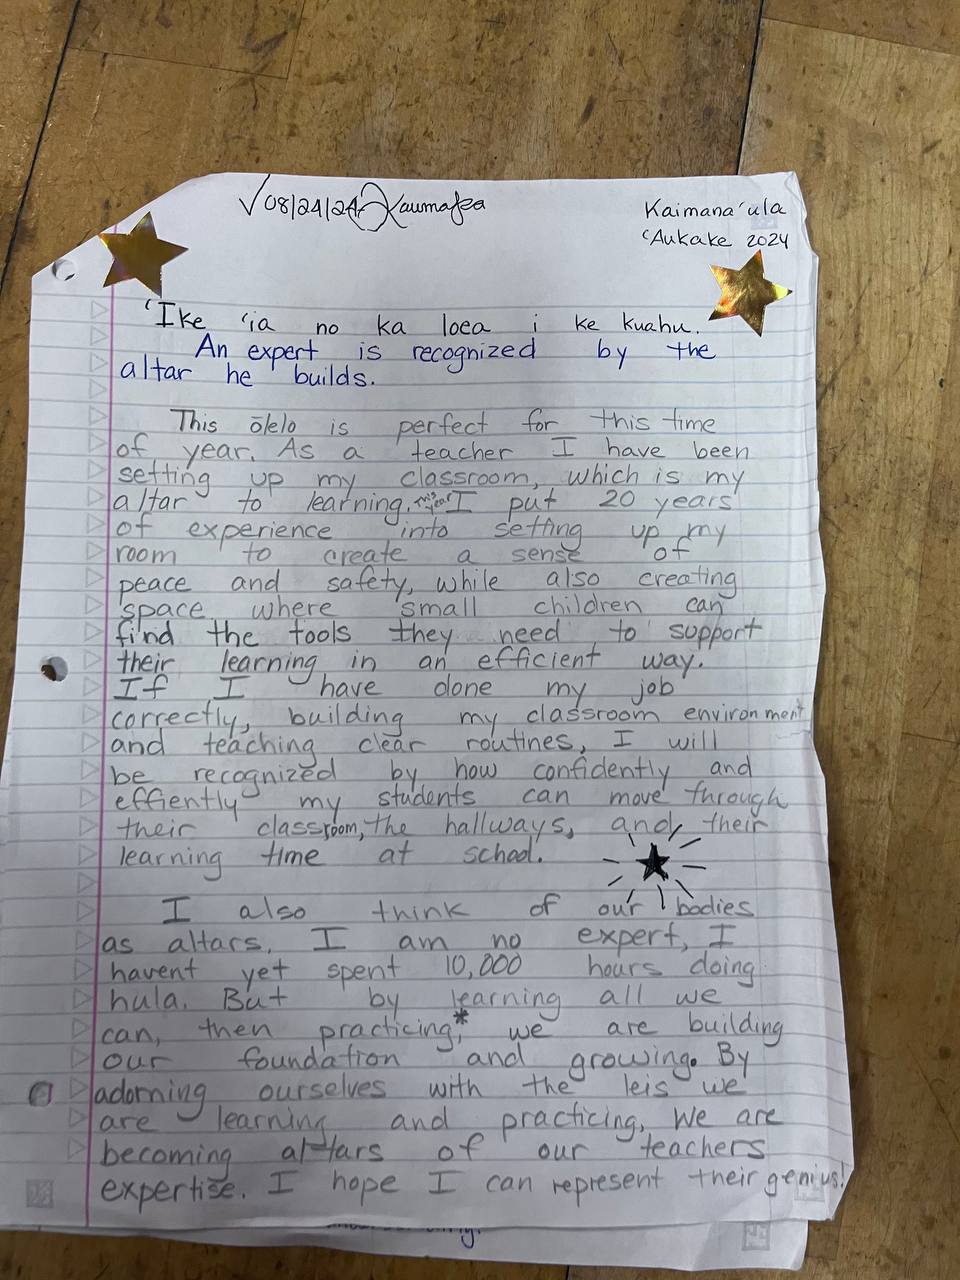 √08/24/24 Kaumafea
Kaimana'ula
'Aukake 2024
'Ike 'ia no ka loea i ke kuahu.
An expert is recognized by the
altar he builds.
This ōlelo is perfect for this time
of year. As a teacher I have been
setting up my classroom, which is my
altar to learning. this year I put 20 years
of experience into setting up my
room to create a sense of
peace and safety, while also creating
space where small children can
find the tools they need to support
their learning in an efficient way.
If I have done my job
correctly, building my classroom environment
and teaching clear routines, I will
be recognized by how confidently and
effiently my students can move through
their classroom, the hallways, and their
learning time at school.
I also think of our bodies
as altars. I am no expert, I
havent yet spent 10,000 hours doing
hula. But by learning all we
can, then practicing,* we are building
our foundation and growing. By
adorning ourselves with the leis we
are learning and practicing, we are
becoming altars of our teachers
expertise. I hope I can represent their genius!